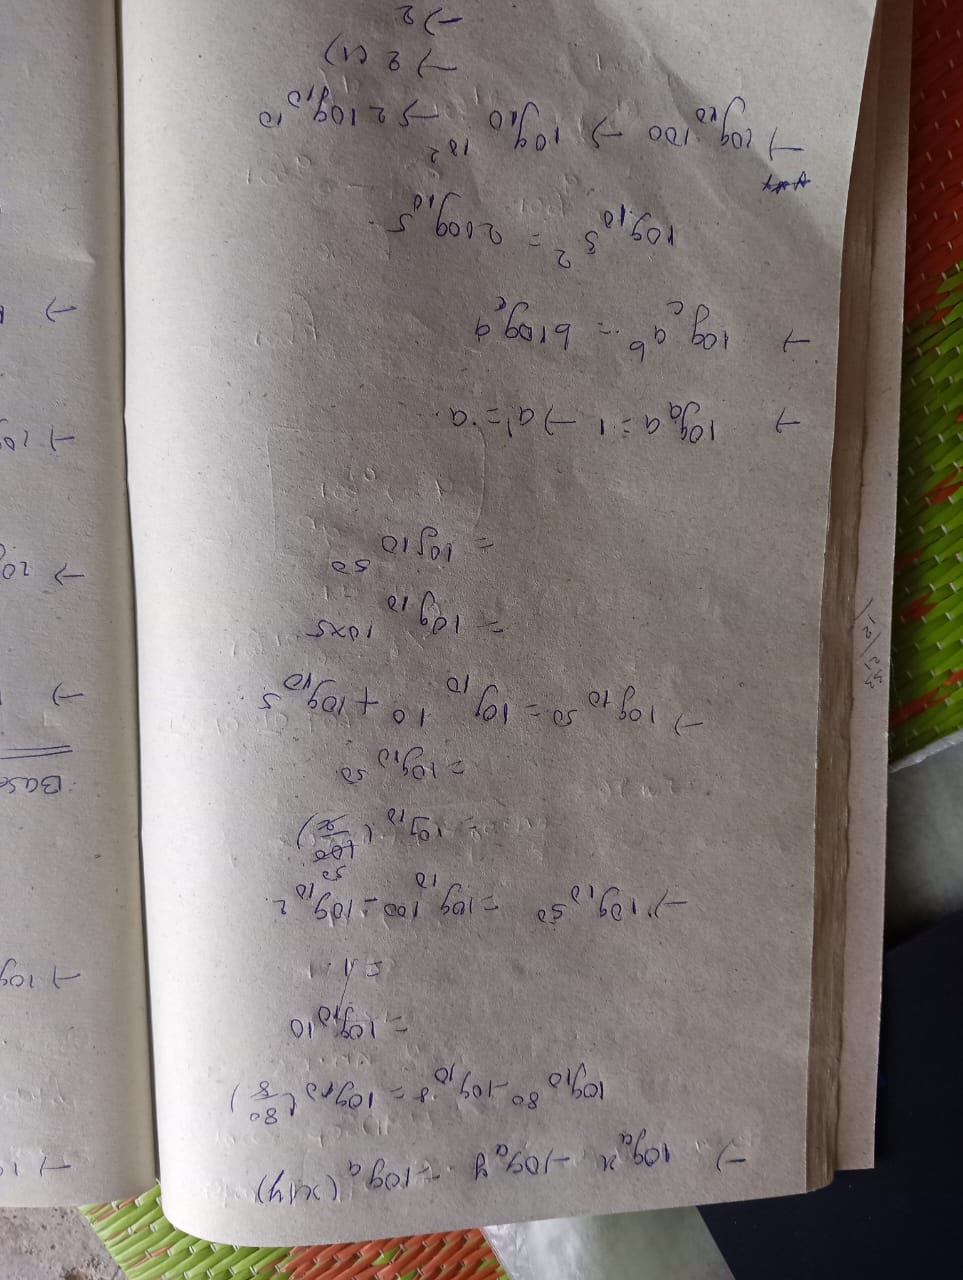 → logₐ x - logₐ y = logₐ (x/y)
log₁₀ 80 - log₁₀ 8 = log₁₀ (80/8)
= log₁₀ 10
= 1
→ log₁₀ 50 = log₁₀ 100 - log₁₀ 2
= log₁₀ (100/2) 50
= log₁₀ 50
→ log₁₀ 50 = log₁₀ 10 + log₁₀ 5
= log₁₀ 10x5
= log 10 50
→ logₐ a = 1 → a¹ = a
→ log_c a^b = b log_c a
log₁₀ 5² = 2 log₁₀ 5
→ log₁₀ 100 → log₁₀ 10² → 2 log₁₀ 10
→ 2 (1)
→ 2
Base